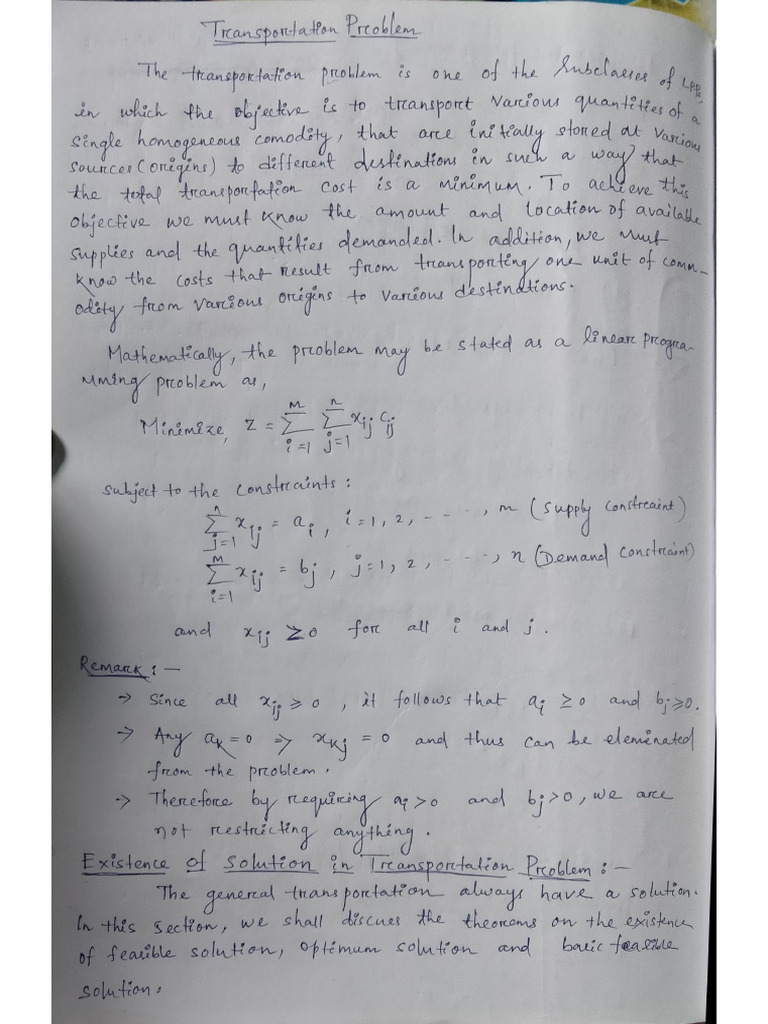 Transportation Problem
The transportation problem is one of the subclasses of LPPs,
in which the objective is to transport various quantities of a
single homogeneous comodity, that are initially stored at various
sources (origins) to different destinations in such a way that
the total transportation cost is a minimum. To achieve this
objective we must know the amount and location of available
supplies and the quantities demanded. In addition, we must
know the costs that result from transporting one unit of comm-
odity from various origins to various destinations.
Mathematically, the problem may be stated as a linear progra-
mming problem as,
Minimize, Z = ∑_{i=1}^{m} ∑_{j=1}^{n} x_{ij} c_{ij}
subject to the constraints :
∑_{j=1}^{n} x_{ij} = a_i, i=1, 2, - - - -, m (Supply constraint)
∑_{i=1}^{m} x_{ij} = b_j, j=1, 2, - - - -, n (Demand constraint)
and x_{ij} ≥ 0 for all i and j.
Remark : —
→ Since all x_{ij} ≥ 0, it follows that a_i ≥ 0 and b_j ≥ 0.
→ Any a_k = 0 ⇒ x_{kj} = 0 and thus can be eleminated
from the problem.
→ Therefore by requiring a_i > 0 and b_j > 0, we are
not restricting anything.
Existence of Solution in Transportation Problem : —
The general transportation always have a solution.
In this section, we shall discuss the theorems on the existence
of feasible solution, optimum solution and basic feasible
solution.